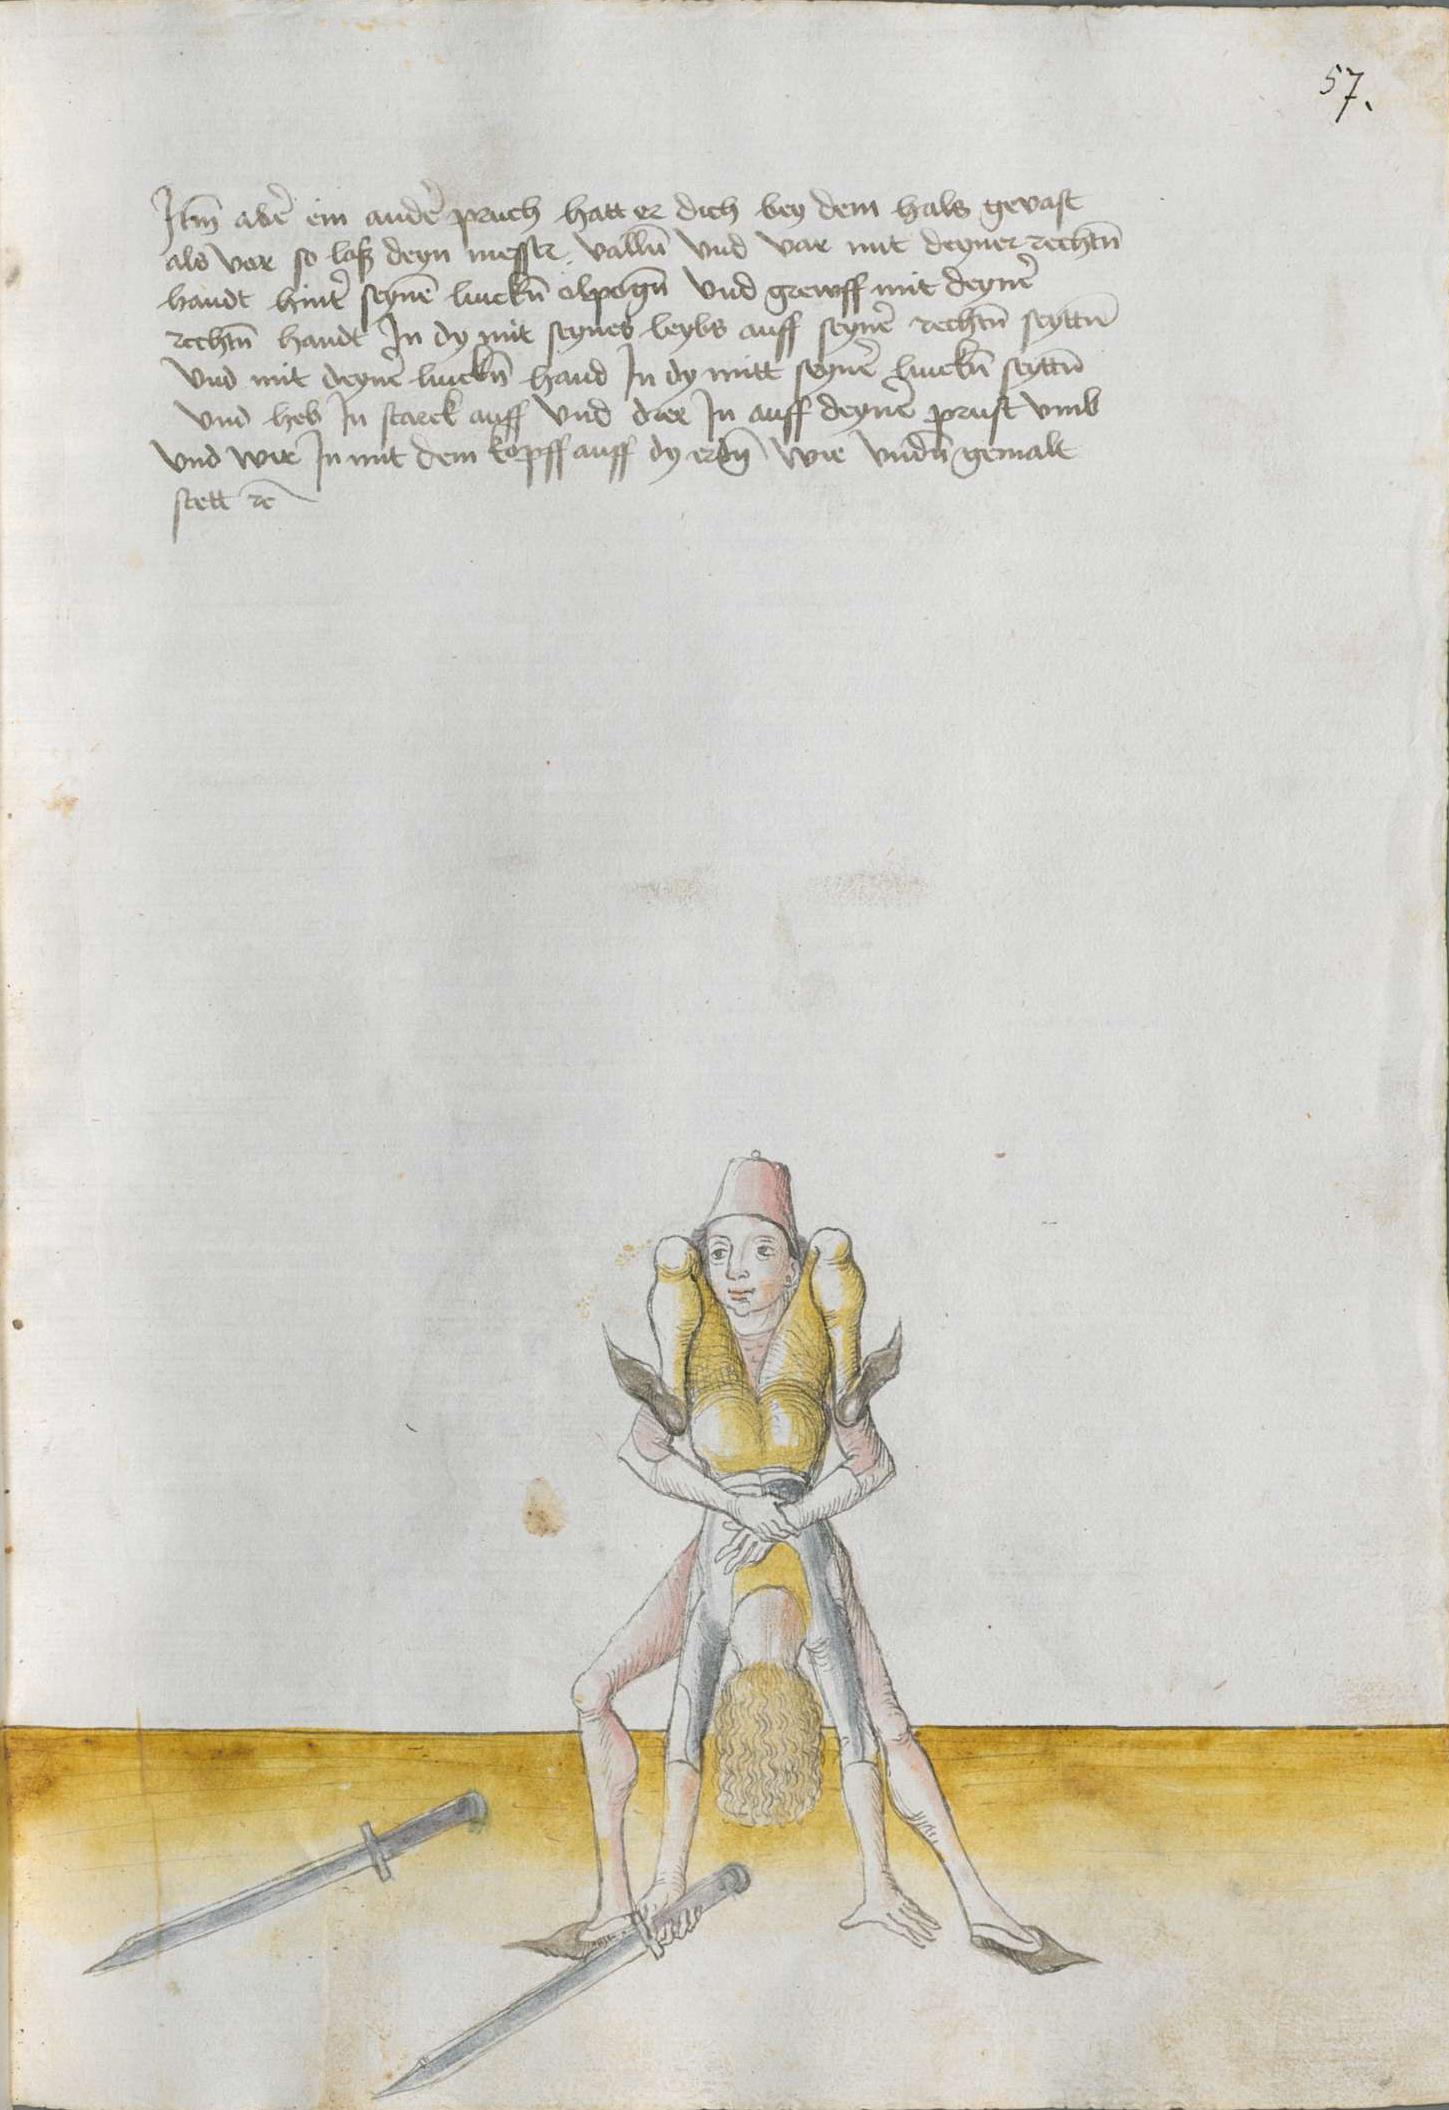 57.
Jtm̄ abeˀ ein andeˀ pruch hatt er dich bey dem hals gevast
als vor so laß deyn messer vallñ vnd var mit deyner rechtñ
handt hinteˀ seynē linckñ elpogñ vnd greyff mit deyneˀ
rechtñ handt Jn dy mit seynes leybs auff seyneˀ rechtñ seyttñ
vnd mit deyneˀ linckñ hand Jn dy mitt seyneˀ linckñ seyttñ
vnd heb Jn starck auff vnd dree Jn auff deyneˀ prust vmb
vnd wir Jn mit dem kopff auff dy erdñ wie vndñ gemalt
stett ꝛc̄